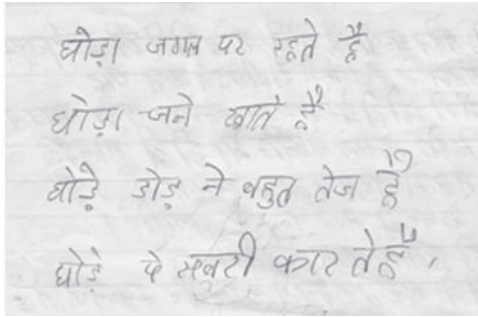 घोड़ा जगल पर रहते है
घोड़ा चने खाते है
घोड़े डोड़ ने बहुत तेज है
घोड़े पे सवारी कार ते है,